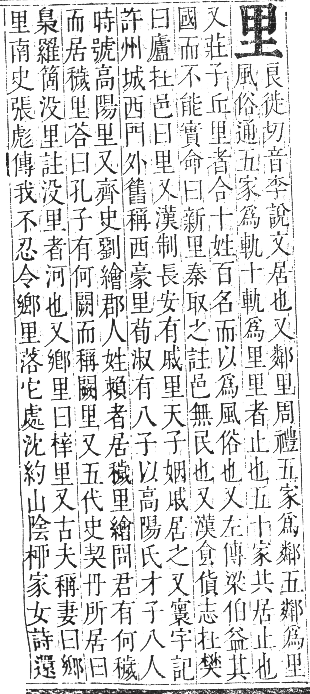 里
良徙切音李說文居也又鄰里周禮五家為鄰五鄰為里
風俗通五家為軌十軌為里里者止也五十家共居止也
又莊子丘里者合十姓百名而以為風俗也又左傳梁伯益其
國而不能實命曰新里秦取之註邑無民也又漢食貨志在壄
曰廬在邑曰里又漢制長安有戚里天子姻戚居之又寰宇記
許州城西門外舊稱西豪里荀淑有八子以高陽氏才子八人
時號高陽里又齊史劉繪郡人姓賴者居穢里繪問君有何穢
而居穢里答曰孔子有何闕而稱闕里又五代史契丹所居曰
梟羅箇没里註没里者河也又鄉里曰梓里又古夫稱妻曰鄉
里南史張彪傳我不忍令鄉里落它處沈約山陰柳家女詩還